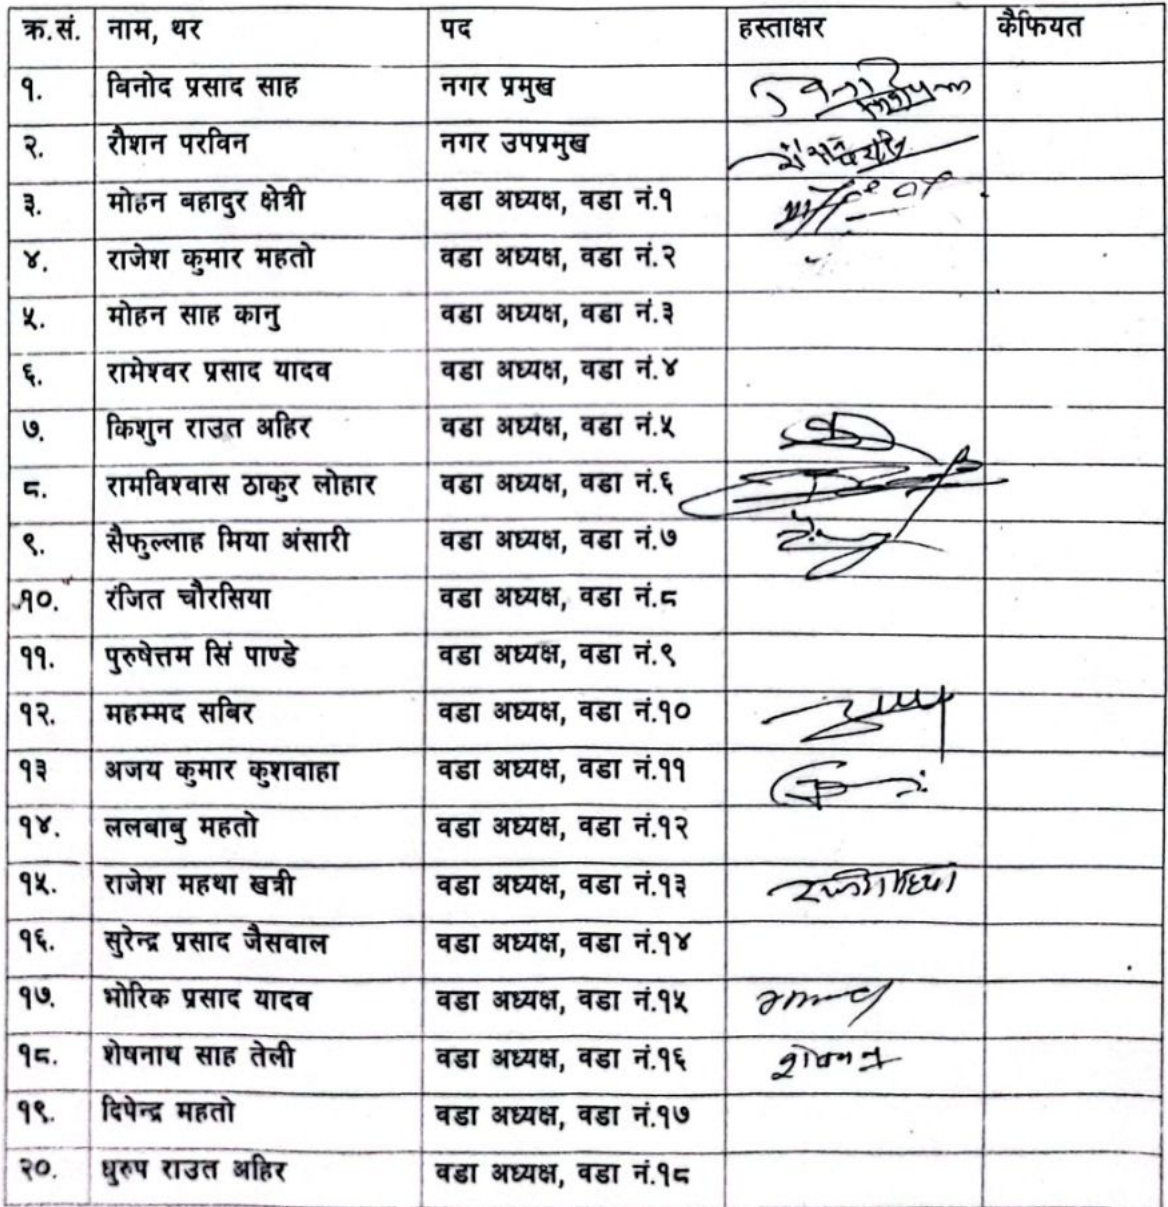 क्र.सं. नाम, थर पद हस्ताक्षर कैफियत
१. विनोद प्रसाद साह नगर प्रमुख
२. रौशन परविन नगर उपप्रमुख
३. मोहन बहादुर क्षेत्री वडा अध्यक्ष, वडा नं.१
४. राजेश कुमार महतो वडा अध्यक्ष, वडा नं.२
५. मोहन साह कानु वडा अध्यक्ष, वडा नं.३
६. रामेश्वर प्रसाद यादव वडा अध्यक्ष, वडा नं.४
७. किशुन राउत अहिर वडा अध्यक्ष, वडा नं.५
८. रामविश्वास ठाकुर लोहार वडा अध्यक्ष, वडा नं.६
९. सैफुल्लाह मिया अंसारी वडा अध्यक्ष, वडा नं.७
१०. रंजित चौरसिया वडा अध्यक्ष, वडा नं.८
११. पुरुषेत्तम सिं पाण्डे वडा अध्यक्ष, वडा नं.९
१२. महम्मद सबिर वडा अध्यक्ष, वडा नं.१०
१३ अजय कुमार कुशवाहा वडा अध्यक्ष, वडा नं.११
१४. ललबाबु महतो वडा अध्यक्ष, वडा नं.१२
१५. राजेश महथा खत्री वडा अध्यक्ष, वडा नं.१३
१६. सुरेन्द्र प्रसाद जैसवाल वडा अध्यक्ष, वडा नं.१४
१७. भोरिक प्रसाद यादव वडा अध्यक्ष, वडा नं.१५
१८. शेषनाथ साह तेली वडा अध्यक्ष, वडा नं.१६
१९. दिपेन्द्र महतो वडा अध्यक्ष, वडा नं.१७
२०. धुरुप राउत अहिर वडा अध्यक्ष, वडा नं.१८